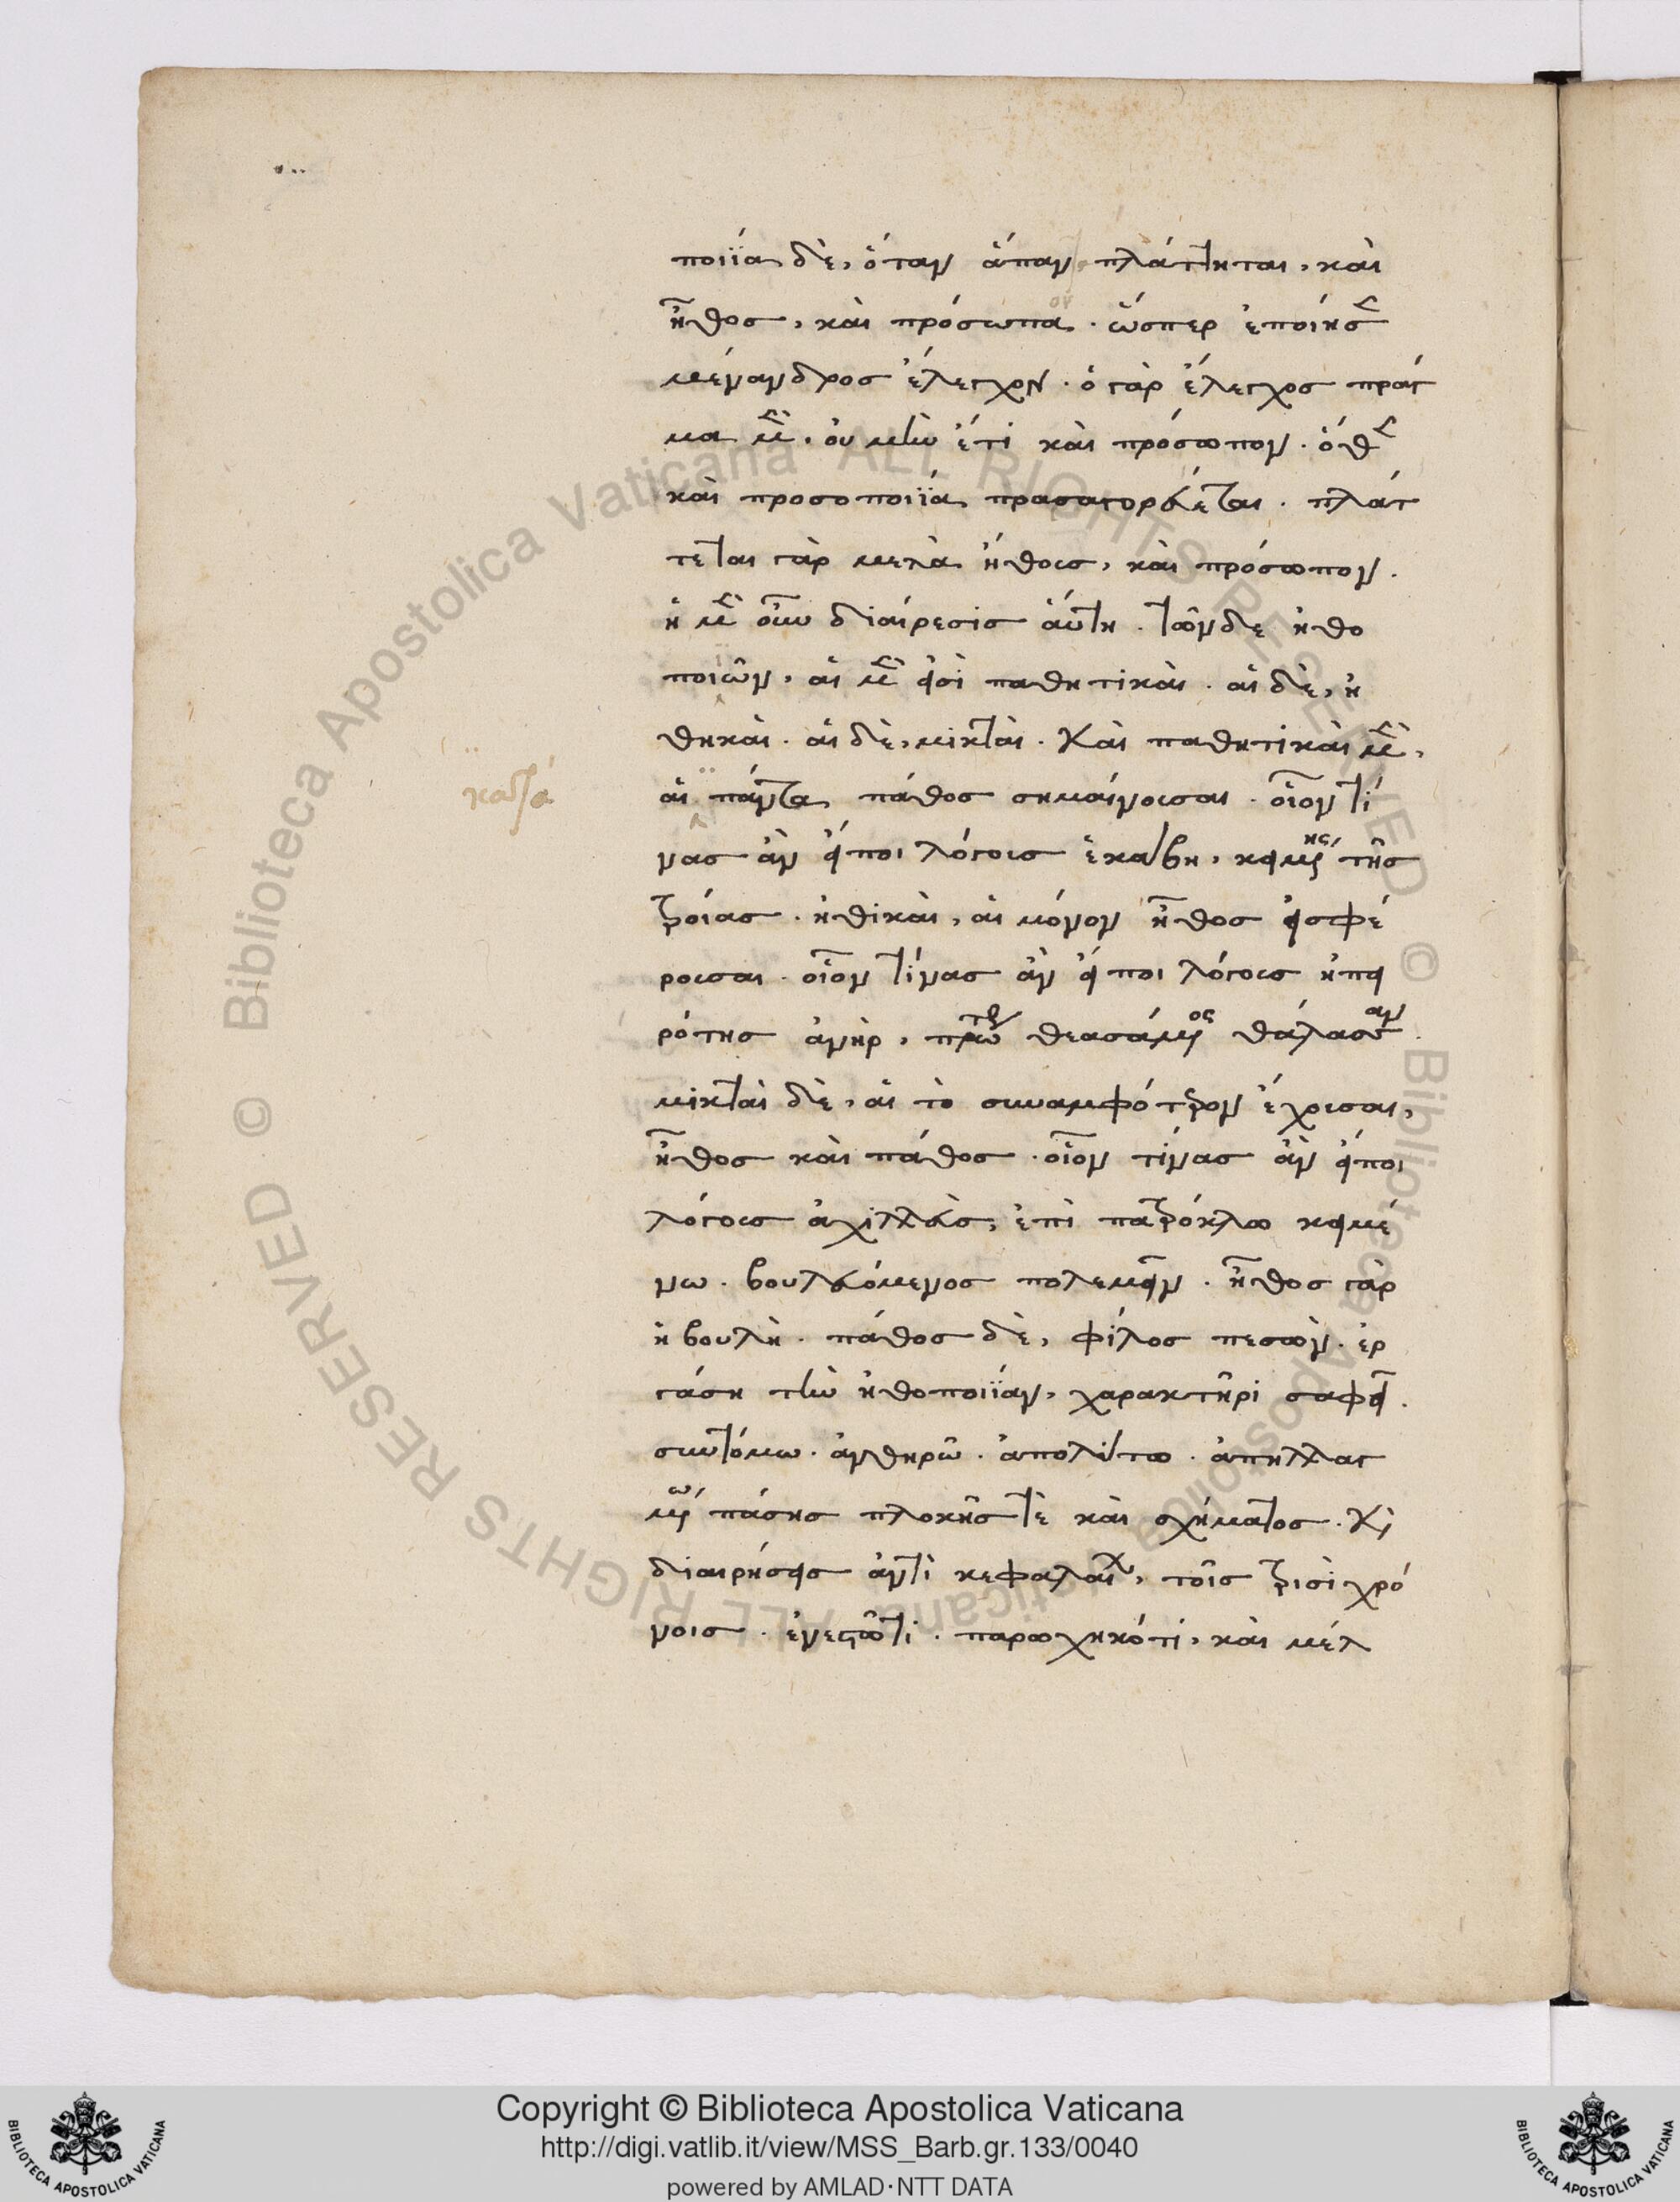 ποιΐα δὲ, ὅταν ἅπαν πλάττηται, καὶ
ἦθος, καὶ πρόσωπα ον. ὥσπερ ἐποίησε
μένανδρος ἔλεγχον. ὁ γὰρ ἔλεγχος πρᾶγ
μα μὲν, οὐ μὴν ἔτι καὶ πρόσωπον. ὅθεν
καὶ προσοποιΐα προσαγορεύεται. πλάτ
τεται γὰρ μετὰ ἤθους, καὶ πρόσωπον.
ἡ μὲν οὖν διαίρεσις αὕτη. τῶν δε ἠθο
ποιῶν, αἱ μὲν εἰσὶ παθητικαὶ. αἱ δὲ, ἠ
θηκαὶ. αἱ δὲ, μικταὶ. Καὶ παθητικαὶ μὲν,
αἱ πάντα πάθος σημαίνουσαι. οἷον τί
νας ἂν εἴποι λόγους ἑκάβη, κειμένης τῆς
τροίας. ἠθικαὶ, αἱ μόνον ἦθος εἰσφέ
ρουσαι. οἷον τίνας ἂν εἴποι λόγους ἠπει
ρότης ἀνὴρ, πρώτως θεασάμενος θάλασσαν.
μικταὶ δὲ, αἱ τὸ συναμφότερον ἔχουσαι,
ἦθος καὶ πάθος. οἷον τίνας ἂν εἴποι
λόγους ἀχιλλεὺς, ἐπὶ πατρόκλω κειμέ
νω. βουλευόμενος πολεμεῖν. ἦθος γὰρ
ἡ βουλὴ. πάθος δὲ, φίλος πεσὼν. ἐρ
γάση τὴν ἠθοποιΐαν, χαρακτῆρι σαφεῖ.
συντόμω. ἀνθηρῶ. ἀπολύτω. ἀπηλλαγ
μένω πάσης πλοκῆς τὲ καὶ σχήματος. Καὶ
διαιρήσεις ἀντὶ κεφαλαίων, τοῖς τρισὶ χρό
νοις. ἐνεστῶτι. παρωχηκότι, καὶ μέλ
Biblioteca Apostolica Vaticana ALL RIGHTS RESERVED ©
Biblioteca Apostolica Vaticana ALL RIGHTS RESERVED ©
Copyright © Biblioteca Apostolica Vaticana
http://digi.vatlib.it/view/MSS_Barb.gr.133/0040
powered by AMLAD·NTT DATA
BIBLIOTECA APOSTOLICA VATICANA
BIBLIOTECA APOSTOLICA VATICANA